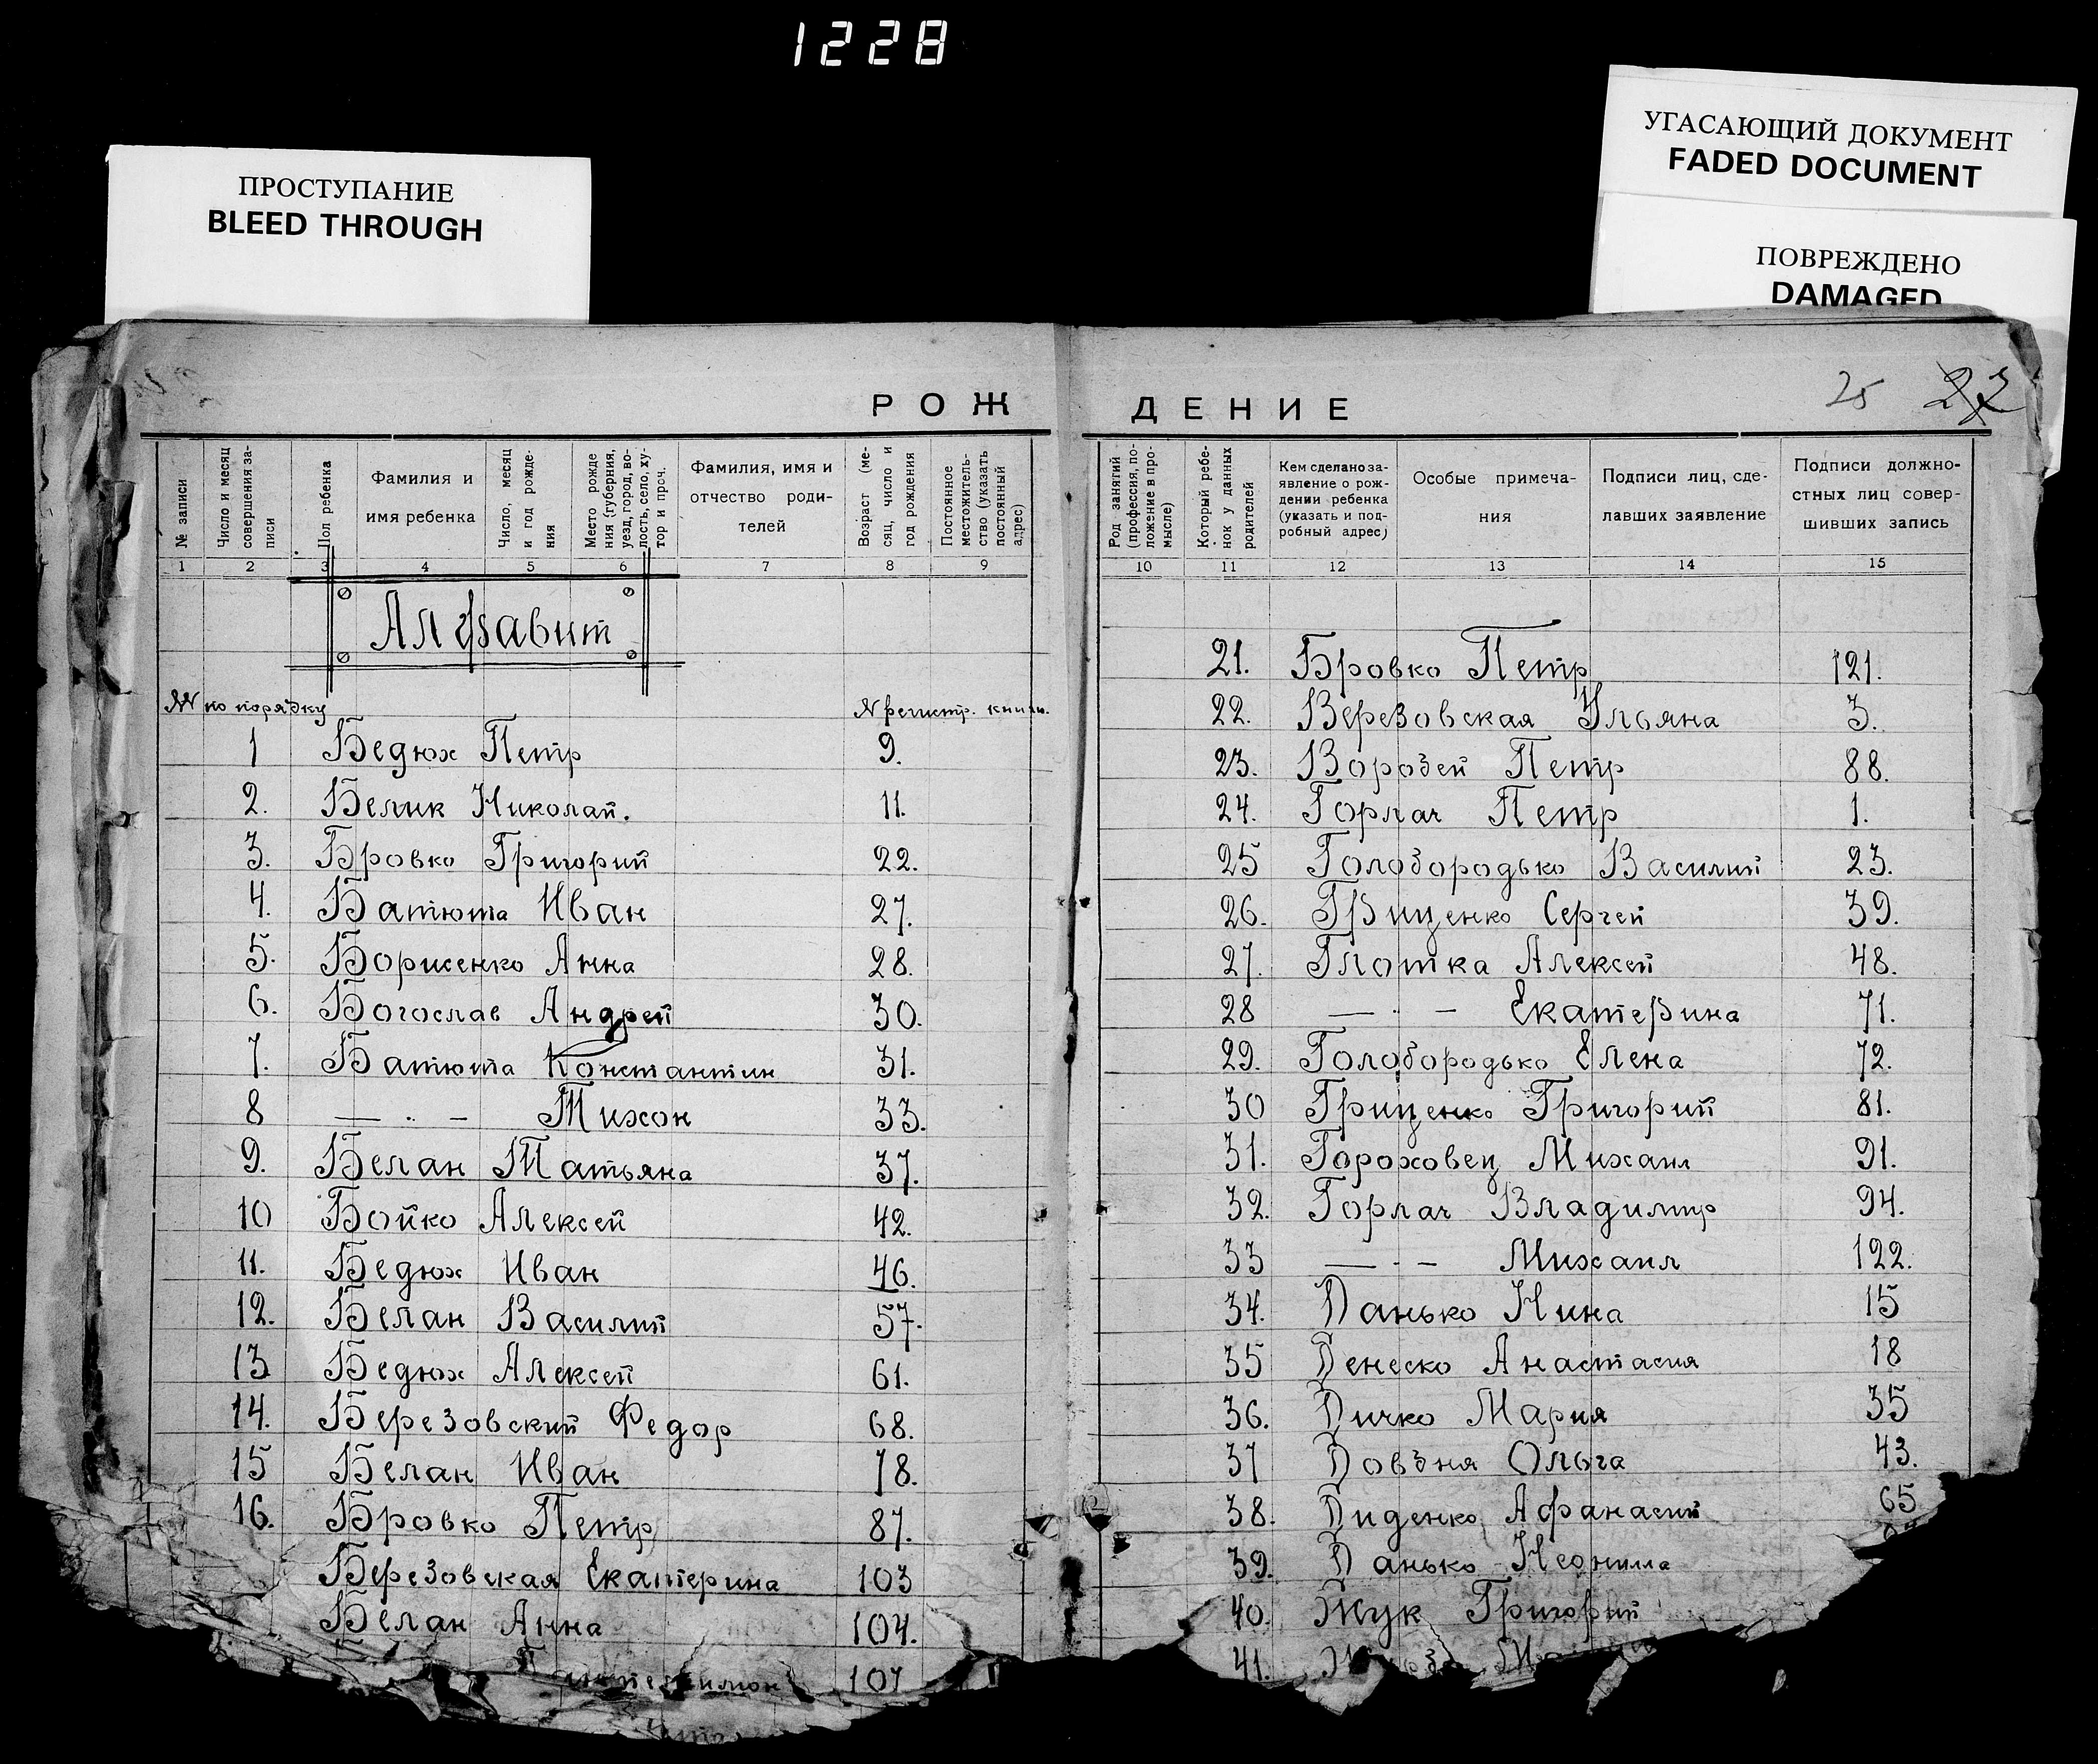 1228
ПРОСТУПАНИЕ
BLEED THROUGH
УГАСАЮЩИЙ ДОКУМЕНТ
FADED DOCUMENT
ПОВРЕЖДЕНО
DAMAGED
25 27
РОЖ
ДЕНИЕ
№ записи
Число и месяц совершения записи
Пол ребенка
Фамилия и имя ребенка
Число, месяц и год рождения
Место рождения (губерния, уезд, город, волость, село, хутор и проч.
Фамилия, имя и отчество родителей
Возраст (месяц, число и год рождения
Постоянное местожительство (указать постоянный адрес)
Род занятий (профессия, положение в промысле)
Который ребенок у данных родителей
Кем сделано заявление о рождении ребенка (указать и подробный адрес)
Особые примечания
Подписи лиц, сделавших заявление
Подписи должностных лиц совершивших запись
1 2 3 4 5 6 7 8 9
10 11 12 13 14 15
Алфавит
№№ по порядку
№ регистр. книги.
1 Бедюх Петр 9.
2. Белик Николай. 11.
3. Бровко Григорий 22.
4. Батюта Иван 27.
5. Борисенко Анна 28.
6. Богослав Андрей 30.
7. Батюта Константин 31.
8 — · — Тихон 33.
9. Белан Татьяна 37.
10 Бойко Алексей 42.
11. Бедюх Иван 46.
12. Белан Василий 57.
13 Бедюх Алексей 61.
14. Березовский Федор 68.
15 Белан Иван 78.
16. Бровко Петр 87.
Березовская Екатерина 103
Белан Анна 104.
107
21. Бровко Петр 121.
22. Верезовская Ульяна 3.
23. Воробей Петр 88.
24. Горлач Петр 1.
25 Голобородько Василий 23.
26. Гриценко Сергей 39.
27. Глотка Алексей 48.
28 — · — Екатерина 71.
29. Голобородько Елена 72.
30 Гриценко Григорий 81.
31. Гороховец Михаил 91.
32. Горлач Владимир 94.
33 — · — Михаил 122.
34. Данько Нина 15
35 Денеско Анастасия 18
36. Дичко Мария 35
37 Довбня Ольга 43.
38. Диденко Афанасий 65
39. Данько Неонилла
40. Жук Григорий
41.